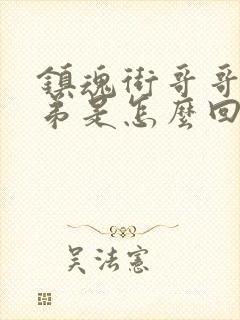 鎮魂街哥哥
弟是怎麼回
吴法憲